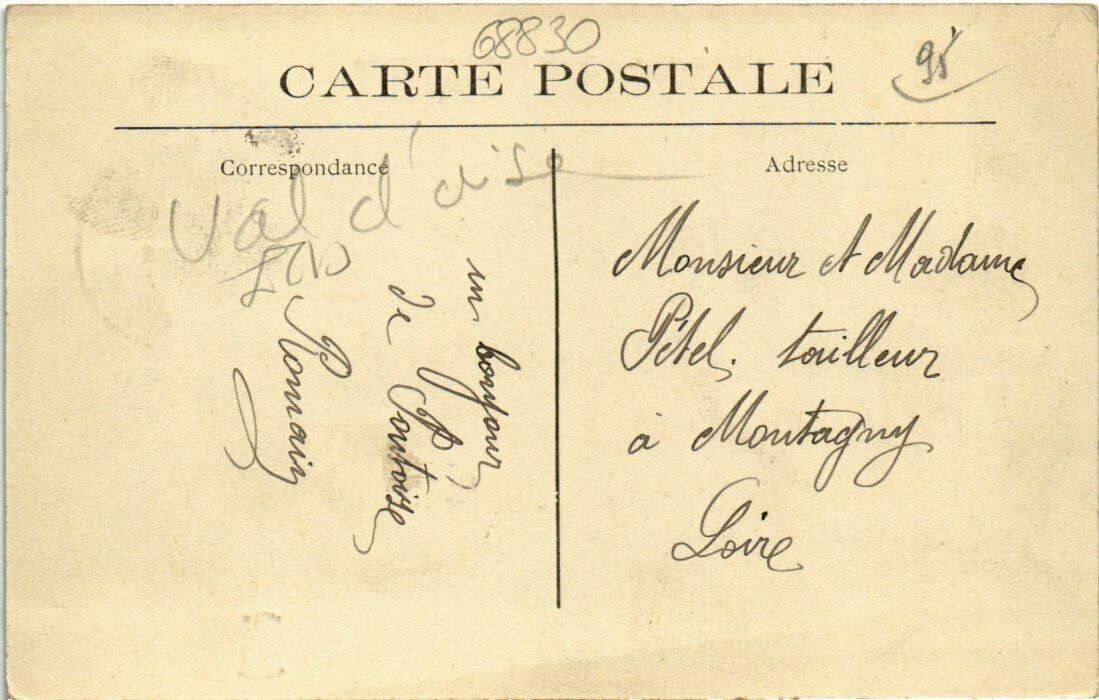 68830
95
CARTE POSTALE
Correspondance
Adresse
Val d'oise
un bonjour
de Pontoise
Romain
Monsieur et Madame
Pétel. tailleur
à Montagny
Loire